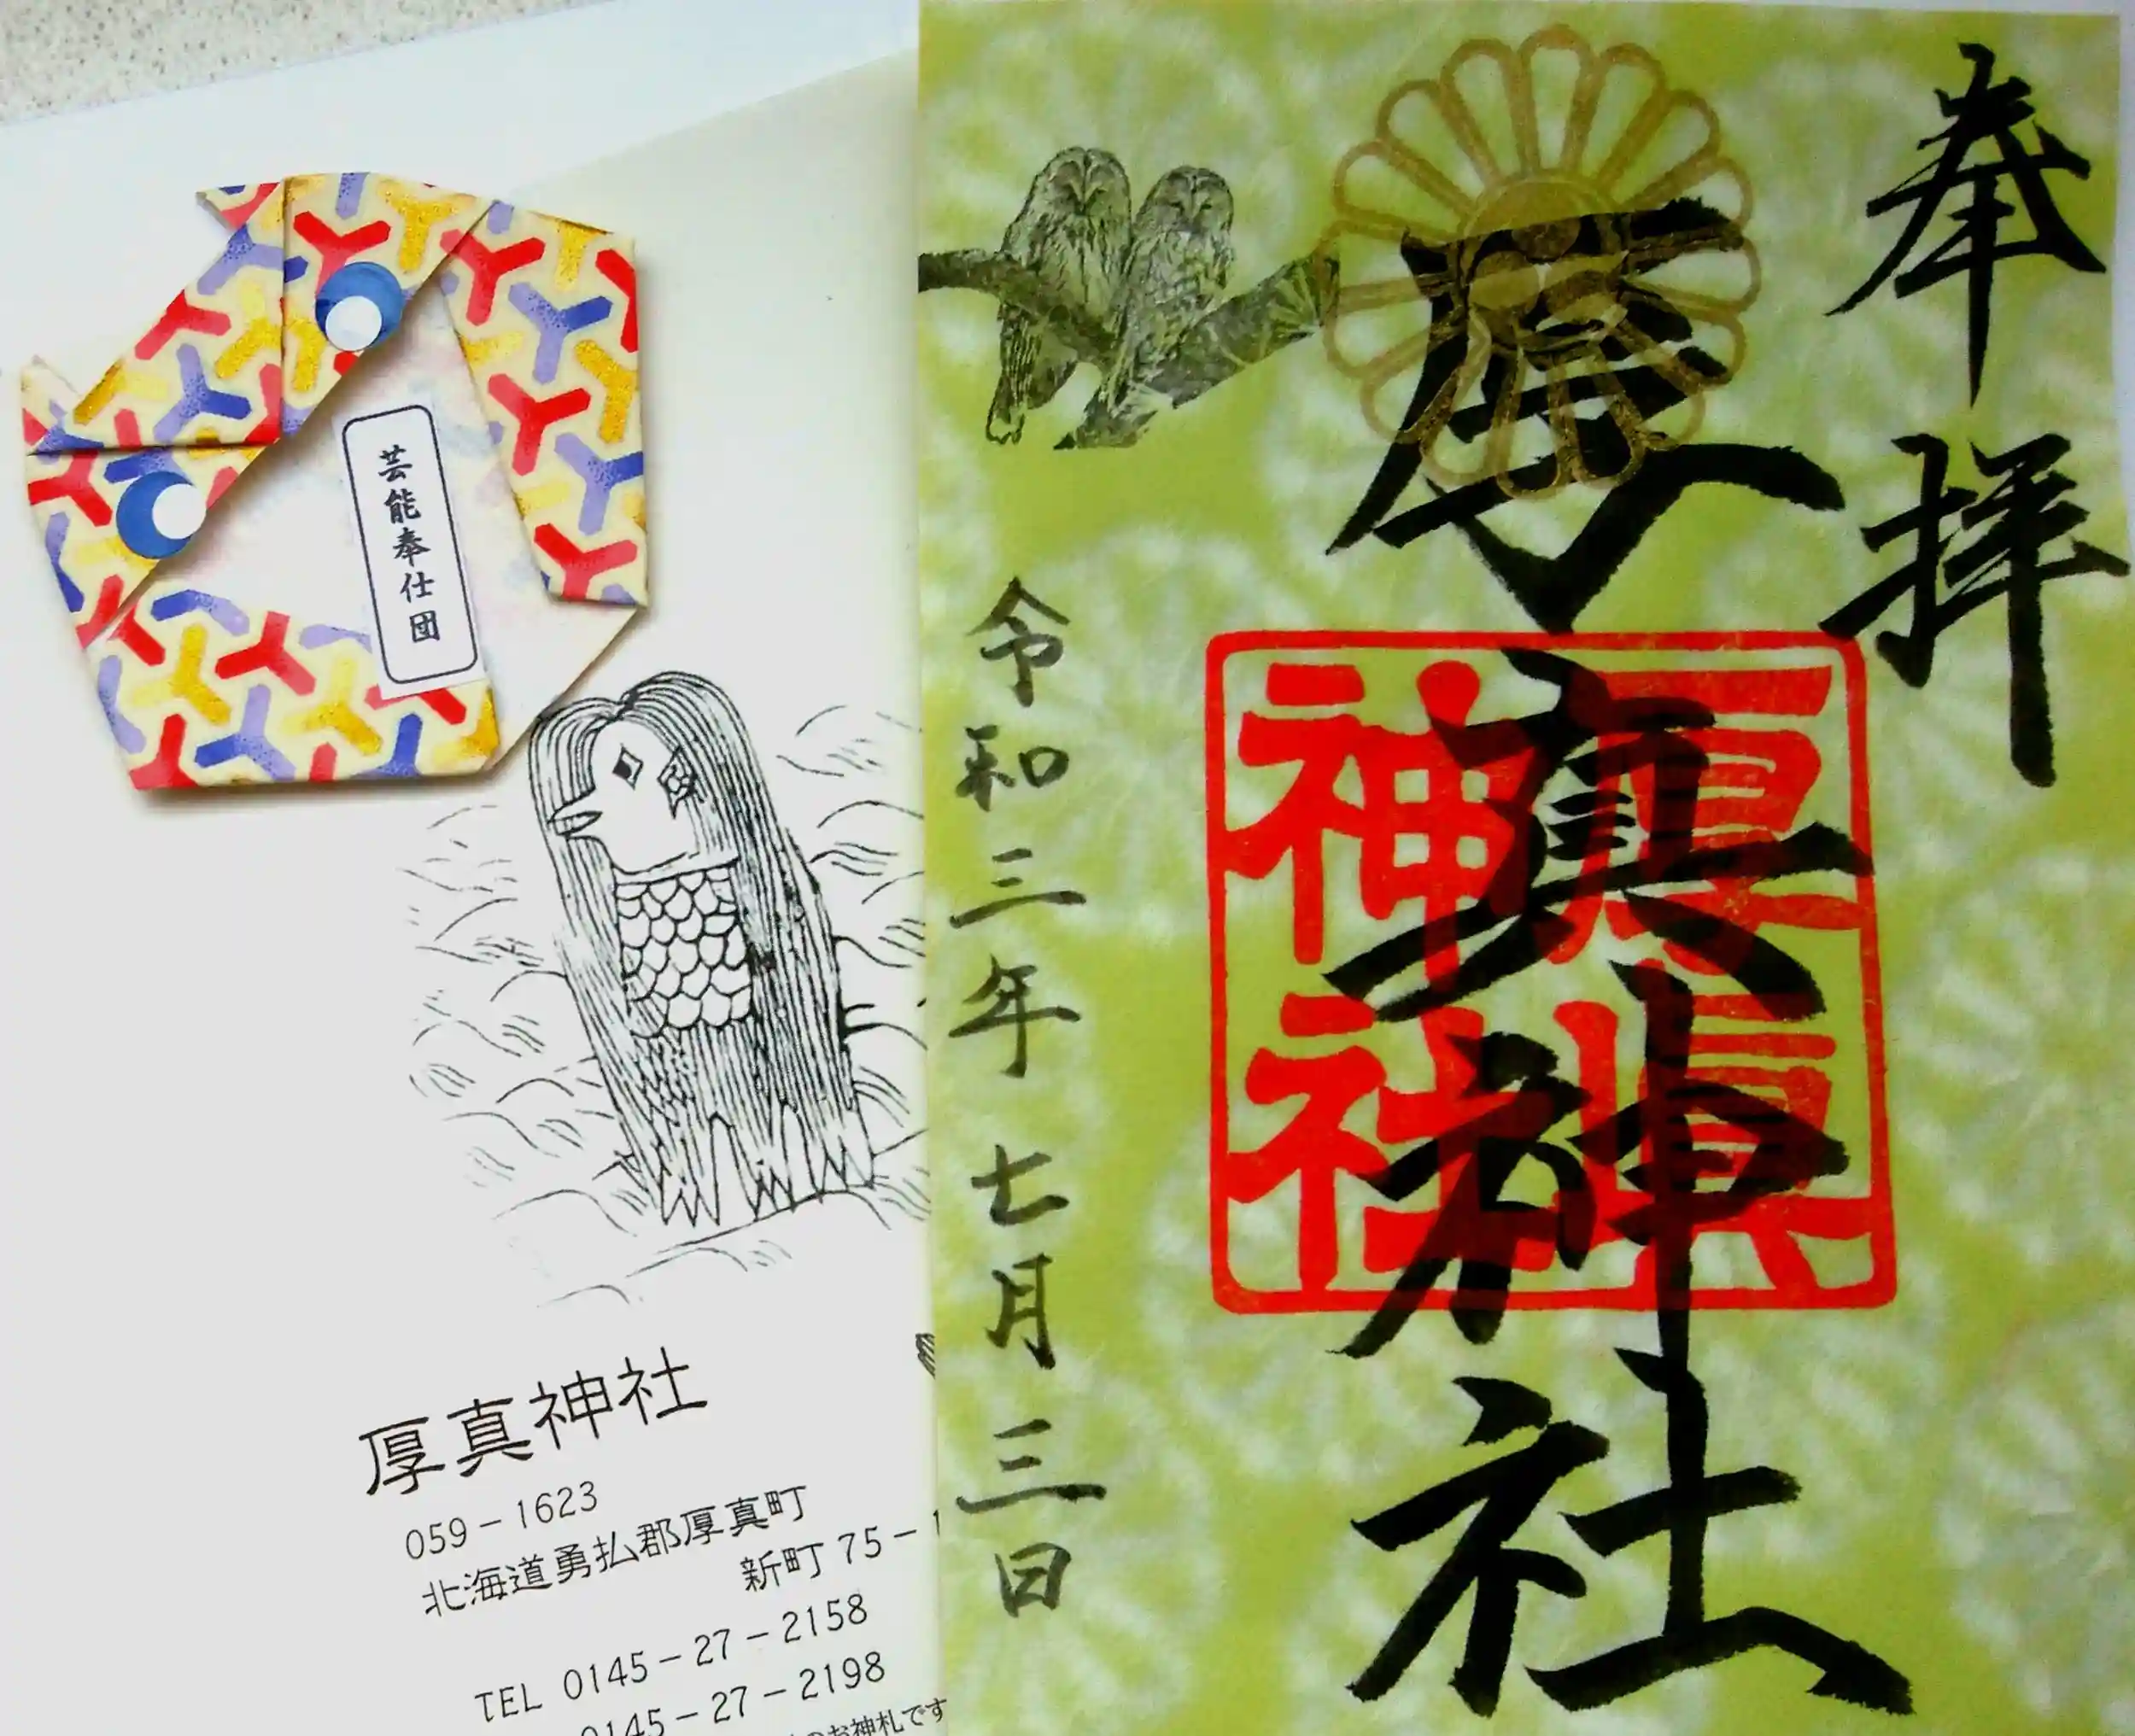 奉拝
厚真神社
厚真
神社
令和三年七月三日
芸能奉仕団
厚真神社
059-1623
北海道勇払郡厚真町
新町 75-1
TEL 0145-27-2158
0145-27-2198
のお神札です